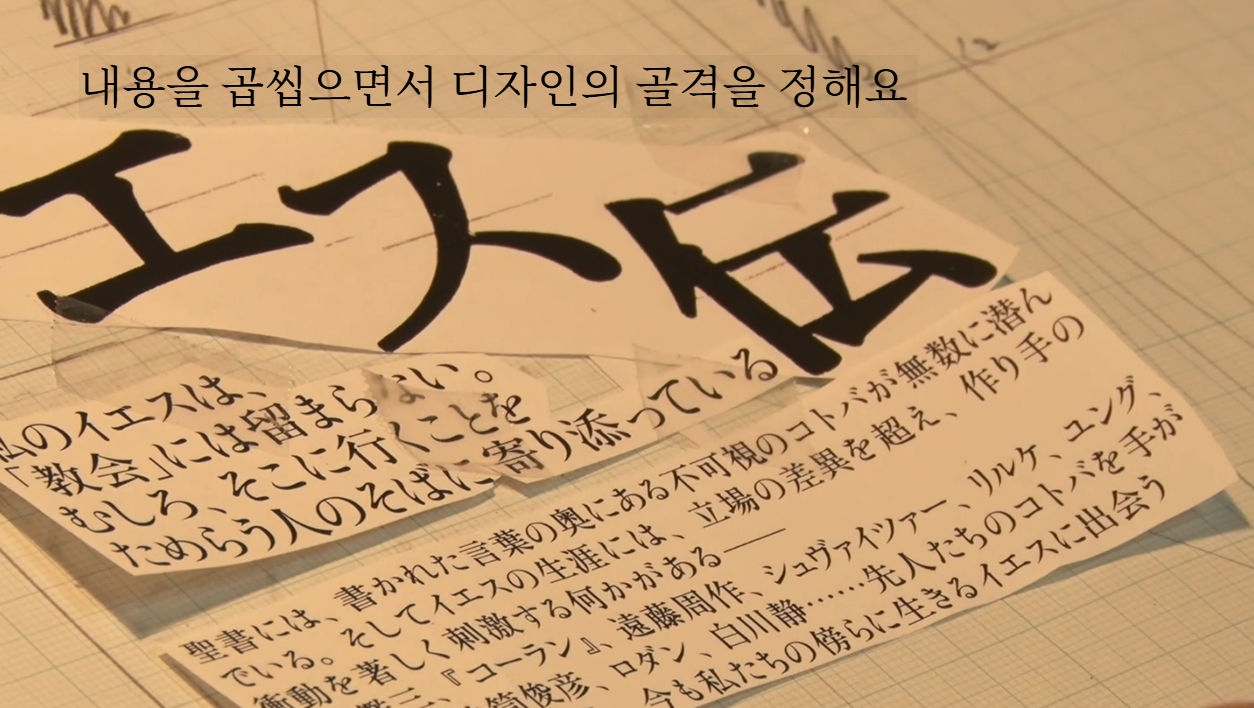 내용을 곱씹으면서 디자인의 골격을 정해요
エス伝
私のイエスは、
「教会」には留まらない。
むしろ、そこに行くことを
ためらう人のそばに寄り添っている
聖書には、書かれた言葉の奥にある不可視のコトバが無数に潜ん
でいる。そしてイエスの生涯には、立場の差異を超え、作り手の
衝動を著しく刺激する何かがある——
鑑三、『コーラン』、遠藤周作、シュヴァイツァー、リルケ、ユング、
筒俊彦、ロダン、白川静……先人たちのコトバを手が
今も私たちの傍らに生きるイエスに出会う